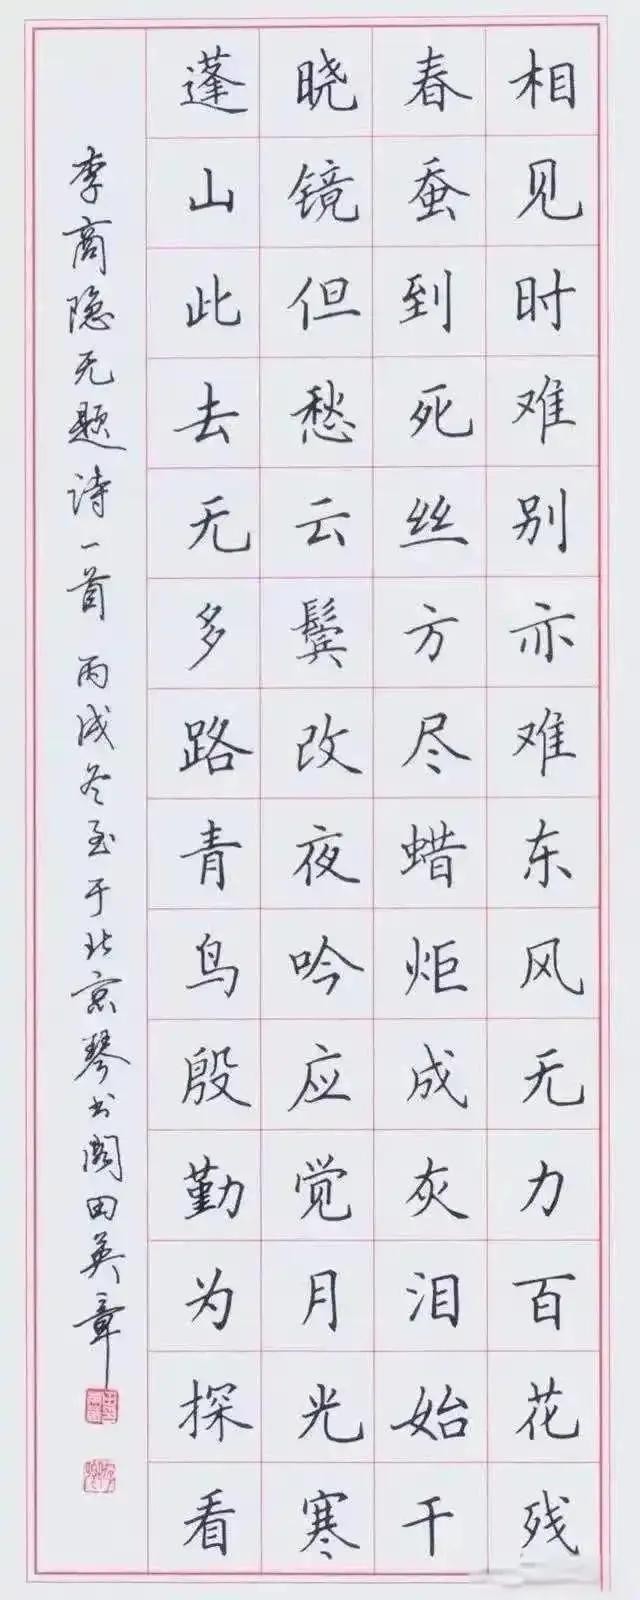 相见时难别亦难东风无力百花残
春蚕到死丝方尽蜡炬成灰泪始干
晓镜但愁云鬓改夜吟应觉月光寒
蓬山此去无多路青鸟殷勤为探看
李商隐无题诗一首 丙戌冬至于北京琴书阁田英章